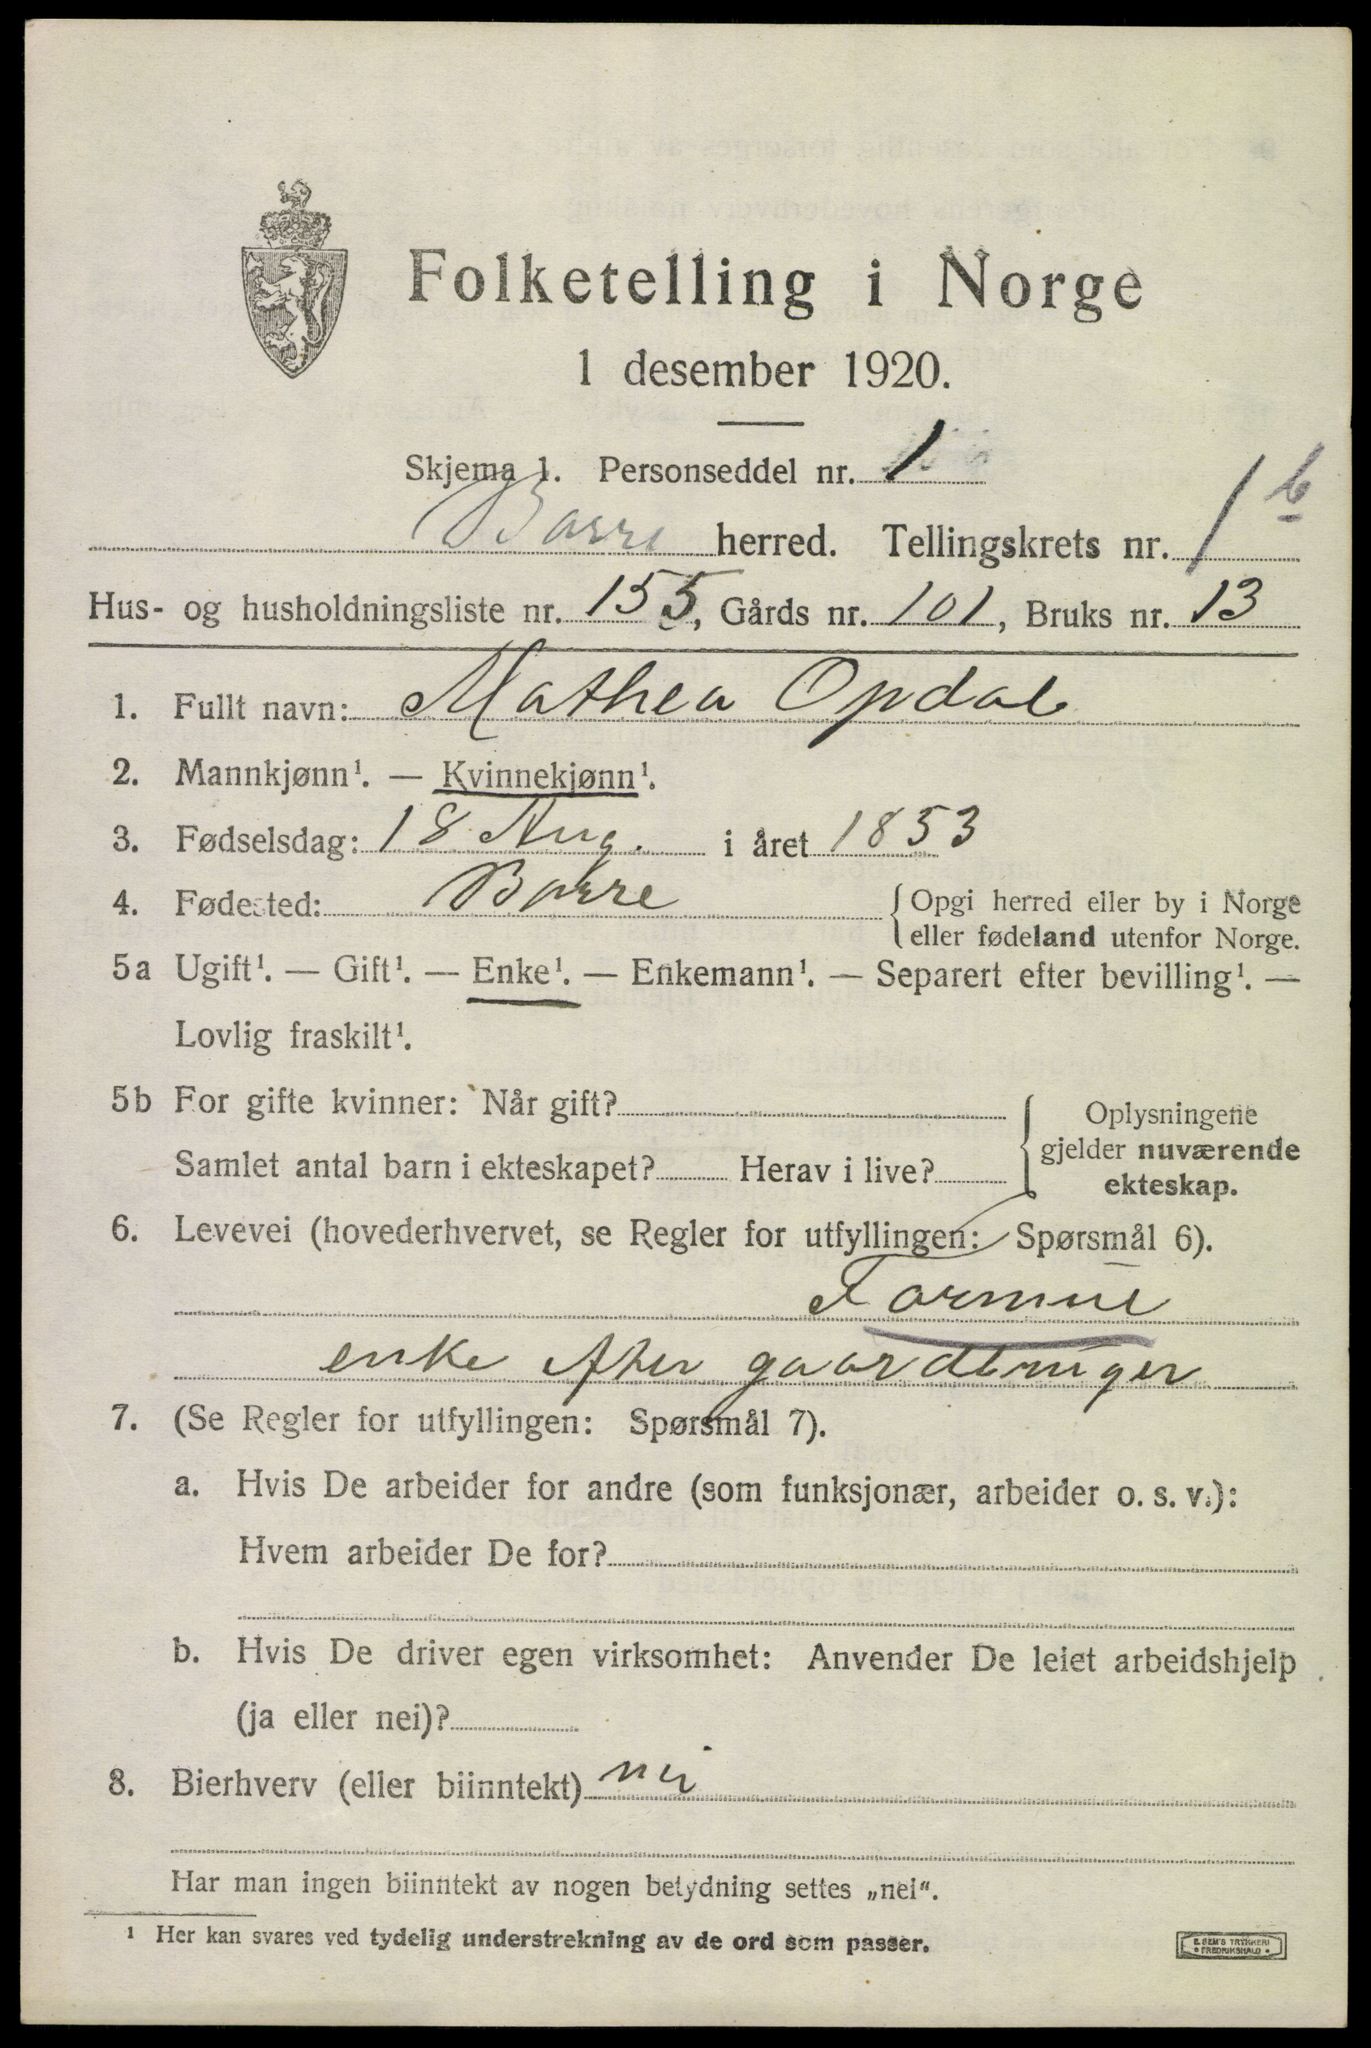 Folketelling i Norge
1 desember 1920.
Skjema 1. Personseddel nr. 1
Borre herred. Tellingskrets nr. 1 b
Hus- og husholdningsliste nr. 155, Gårds nr. 101, Bruks nr. 13
1. Fullt navn: Mathea Opdal
2. Mannkjønn¹. — Kvinnekjønn¹.
3. Fødselsdag: 18 Aug. i året 1853
4. Fødested: Borre { Opgi herred eller by i Norge
eller fødeland utenfor Norge.
5a Ugift¹. — Gift¹. — Enke¹. — Enkemann¹. — Separert efter bevilling¹. —
Lovlig fraskilt¹.
5b For gifte kvinner: Når gift?
Samlet antal barn i ekteskapet? Herav i live?
Oplysningene
gjelder nuværende
ekteskap.
6. Levevei (hovederhvervet, se Regler for utfyllingen: Spørsmål 6).
Formue
enke efter gaardbruger
7. (Se Regler for utfyllingen: Spørsmål 7).
a. Hvis De arbeider for andre (som funksjonær, arbeider o. s. v.):
Hvem arbeider De for?
b. Hvis De driver egen virksomhet: Anvender De leiet arbeidshjelp
(ja eller nei)?
8. Bierhverv (eller biinntekt) nei
Har man ingen biinntekt av nogen betydning settes „nei“.
¹ Her kan svares ved tydelig understrekning av de ord som passer.
E. SEM'S TRYKKERI
• FREDRIKSHALD •